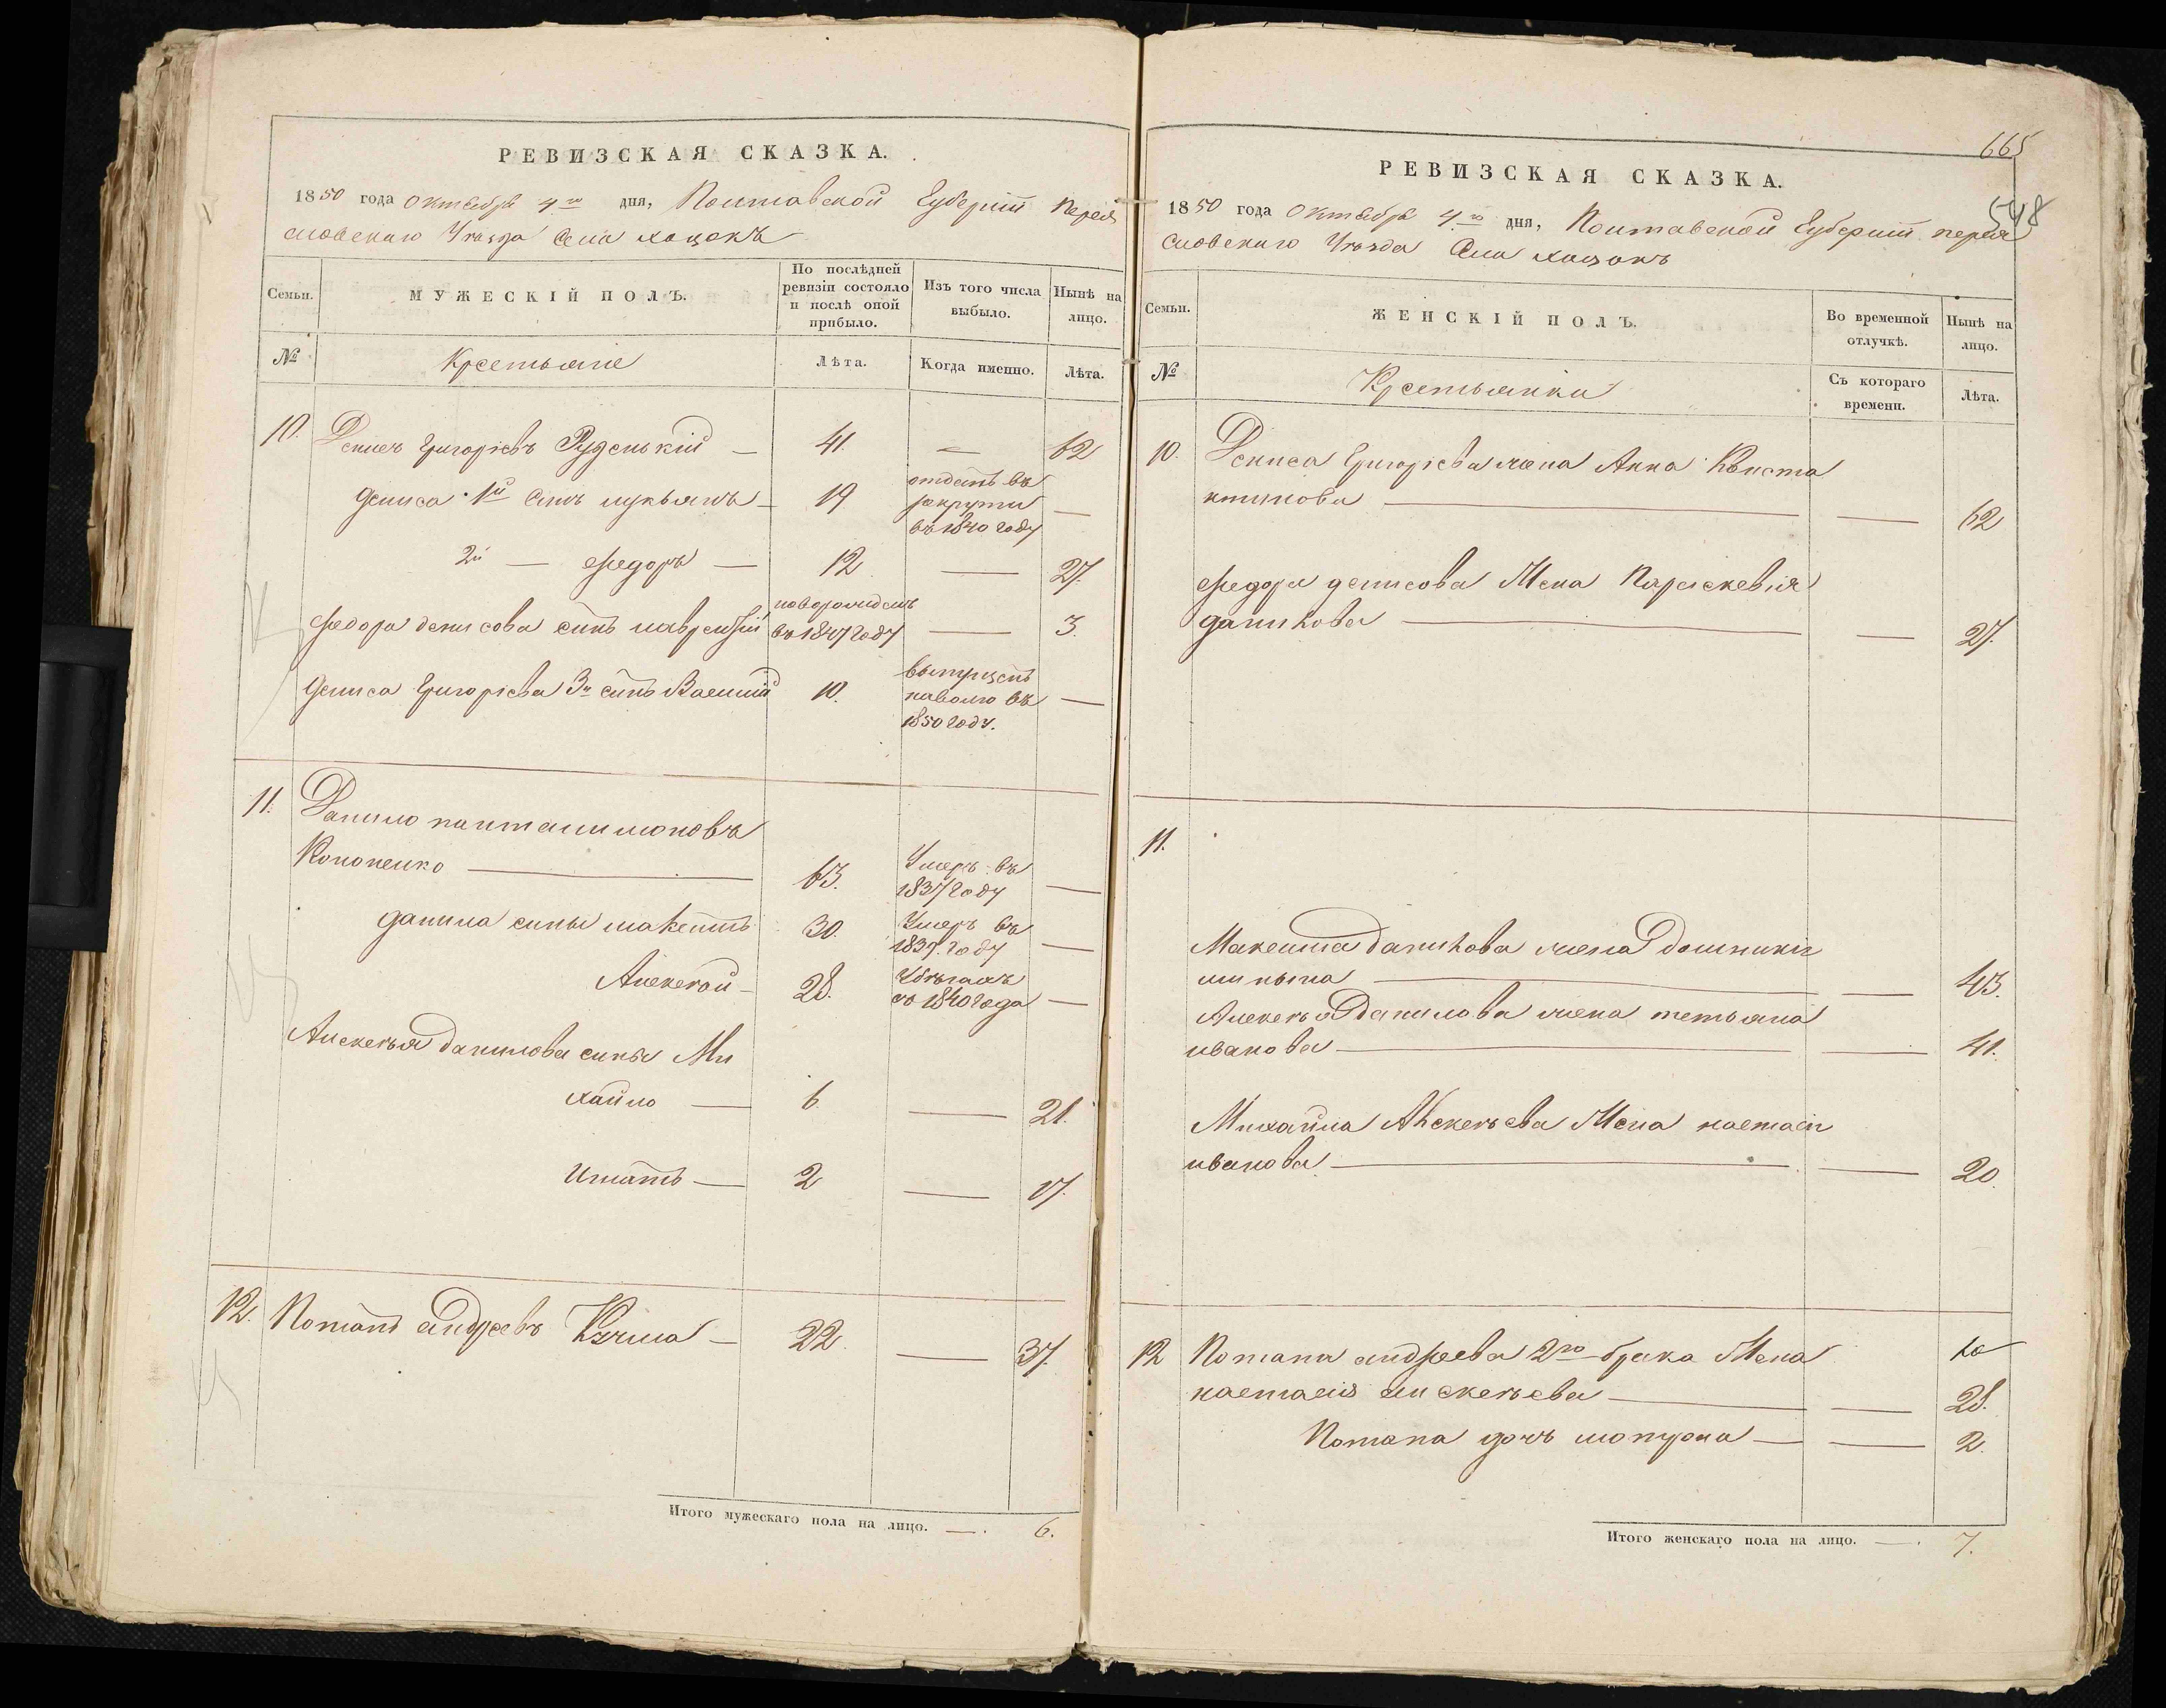 РЕВИЗСКАЯ СКАЗКА.
1850 года Октября 4го дня, Полтавской Губернiи Перея
словского Уезда Села Хоцокъ
Семьи.
МУЖЕСКІЙ ПОЛЪ.
По послѣдней ревизіи состояло и послѣ оной прибыло.
Изъ того числа выбыло.
Нынѣ на лицо.
№
Крестьяне
Лѣта.
Когда именно.
Лѣта.
10. Денисъ Григорiевъ Руденькiй — 41. — 62
Дениса 1й Сынъ Лукьянъ — 19 отданъ въ
рекруты —
въ 1840 году
2й — Федоръ — 12 — 27.
новорожденъ
Федора Денисова сынъ Лаврентiй въ 1847 году — 3.
Дениса Григорiева 3й сынъ Василiй 10. выпущенъ
наволю въ —
1850 году.
11. Данило Пантелимоновъ
Кононенко — 63. Умеръ въ
1837 году —
Данила сыны Макситъ 30. Умеръ въ
1837. году —
Алексей — 28. Убѣгахъ
съ 1840 года —
Алексея Данилова сыны Ми
хайло — 6. — 21.
Игнатъ — 2 — 17.
12. Потапъ Андреевъ Кучма — 22. — 37.
Итого мужескаго пола на лицо. — . 6.
665
548
РЕВИЗСКАЯ СКАЗКА.
1850 года Октября 4го дня, Полтавской Губернiи Перея
словского Уезда Села Хоцокъ
Семьи.
ЖЕНСКІЙ ПОЛЪ.
Во временной отлучкѣ.
Нынѣ на лицо.
№
Крестьянки
Съ котораго времени.
Лѣта.
10. Дениса Григорiева жена Анна Конста
нтинова — — 62
Федора Денисова Жена Параскевiя
Данилова — — 27.
11.
Максима Данилова жена Домникiя
— — 43.
Алексея Данилова жена Тетьяна
Иванова — — 41.
Михайла Алексеева Жена Настасiя
Иванова — — 20.
12 Потапа Андреева 2го брака Жена
Настасiя Алексеева — — 28.
Потапа дочь — — 2.
Итого женскаго пола на лицо. — . 7.